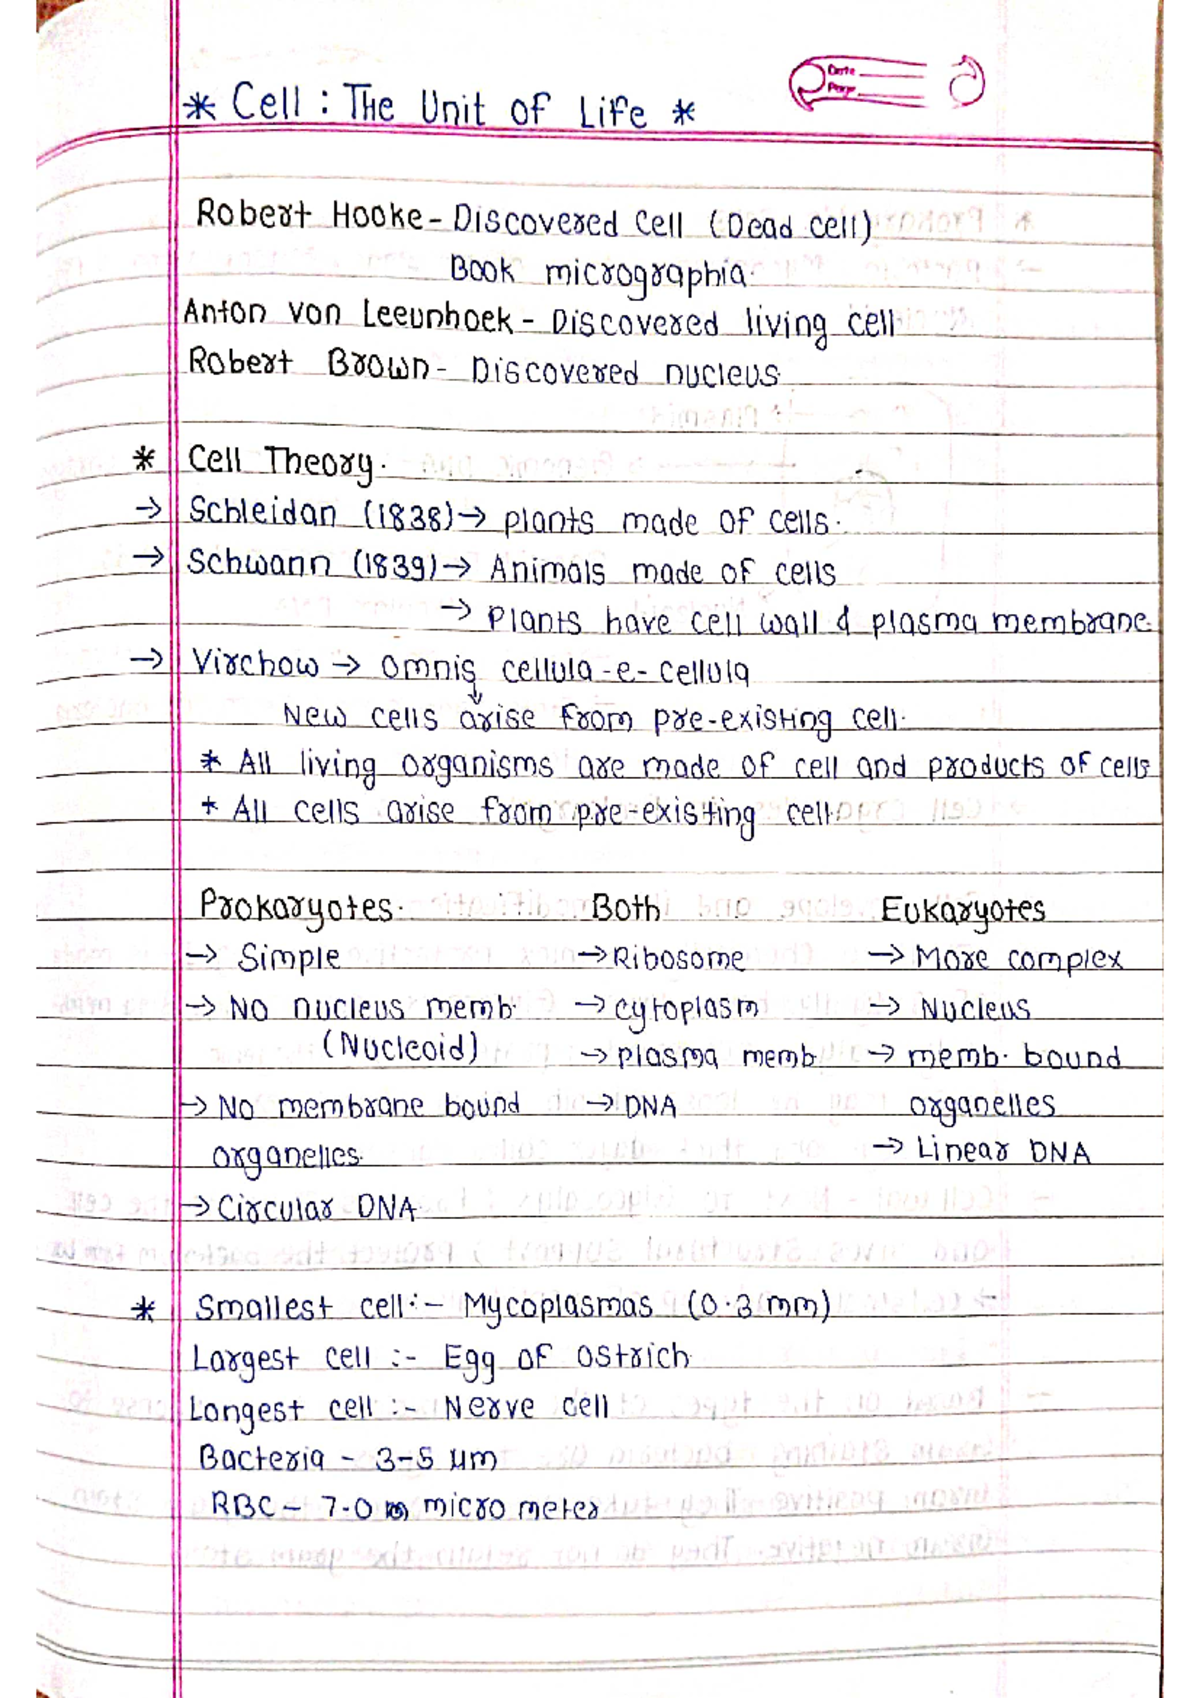 Date
Page
* Cell : The Unit of Life *
Robert Hooke - Discovered Cell (Dead cell)
Book micrographia.
Anton von Leeunhoek - Discovered living cell
Robert Brown - Discovered nucleus
* Cell Theory.
→ Schleidan (1838) → plants made of cells.
→ Schwann (1839) → Animals made of cells
→ Plants have cell wall & plasma membrane.
→ Virchow → omnis cellula-e-cellula
New cells arise from pre-existing cell.
* All living organisms are made of cell and products of cells
* All cells arise from pre-existing cell.
Prokaryotes. Both Eukaryotes
→ Simple → Ribosome → More complex
→ No nucleus memb. → cytoplasm → Nucleus
(Nucleoid) → plasma memb. → memb. bound
→ No membrane bound → DNA organelles
organelles. → Linear DNA
→ Circular DNA
* Smallest cell :- Mycoplasmas (0.3 mm)
Largest cell :- Egg of ostrich
Longest cell :- Nerve cell
Bacteria - 3-5 μm
RBC - 7.0 micro meter